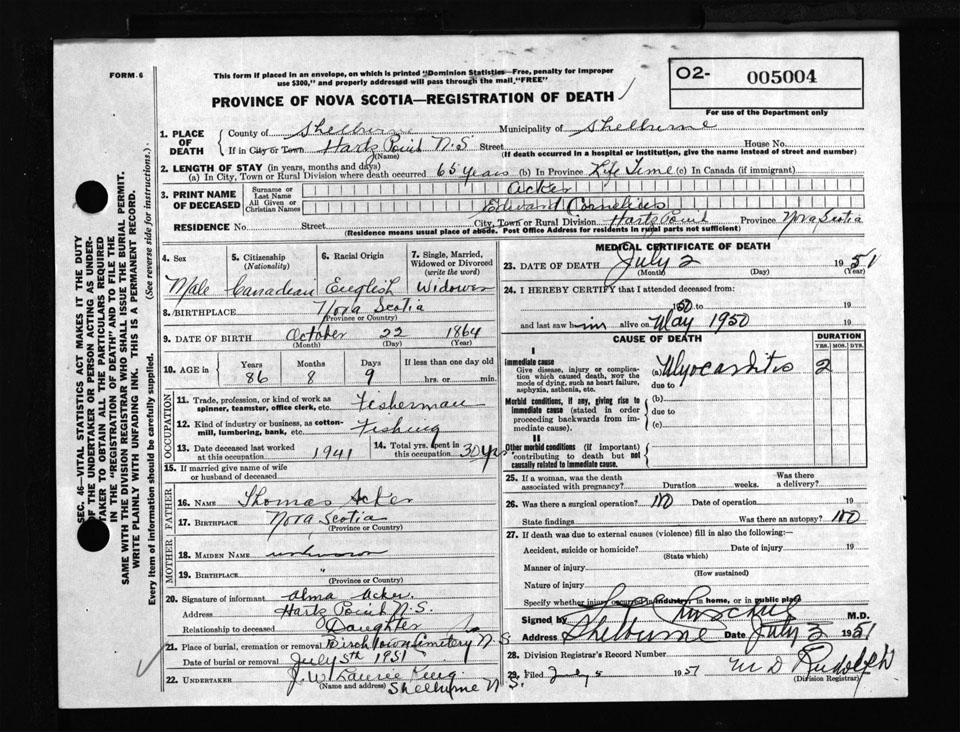 FORM 6
This form if placed in an envelope, on which is printed "Dominion Statistics—Free, penalty for improper
use $300," and properly addressed will pass through the mail, "FREE"
O2- 005004
For use of the Department only
PROVINCE OF NOVA SCOTIA—REGISTRATION OF DEATH
1. PLACE OF DEATH
County of Shelburne Municipality of Shelburne
If in City or Town Hartz Point N.S Street House No.
(Name) (If death occurred in a hospital or institution, give the name instead of street and number)
2. LENGTH OF STAY (in years, months and days)
(a) In City, Town or Rural Division where death occurred 65 years (b) In Province Life Time (c) In Canada (if immigrant)
3. PRINT NAME OF DECEASED
Surname or Last Name Acker
All Given or Christian Names Edward Cornelious
RESIDENCE No. Street City, Town or Rural Division Hartz Point Province Nova Scotia
(Residence means usual place of abode. Post Office Address for residents in rural parts not sufficient)
4. Sex Male
5. Citizenship (Nationality) Canadian
6. Racial Origin English
7. Single, Married, Widowed or Divorced (write the word) Widower
8. BIRTHPLACE Nova Scotia
(Province or Country)
9. DATE OF BIRTH October 22 1864
(Month) (Day) (Year)
10. AGE in Years 86 Months 8 Days 9 If less than one day old hrs. or min.
OCCUPATION
11. Trade, profession, or kind of work as spinner, teamster, office clerk, etc. Fisherman
12. Kind of industry or business, as cotton-mill, lumbering, bank, etc. Fishing
13. Date deceased last worked at this occupation 1941
14. Total yrs. spent in this occupation 30 yrs.
15. If married give name of wife or husband of deceased
FATHER
16. NAME Thomas Acker
17. BIRTHPLACE Nova Scotia
(Province or Country)
MOTHER
18. MAIDEN NAME unknown
19. BIRTHPLACE "
(Province or Country)
20. Signature of informant Alma Acker.
Address Hartz Point N.S.
Relationship to deceased Daughter
21. Place of burial, cremation or removal Birchtown Cemetery N.S
Date of burial or removal July 5th 1951
22. UNDERTAKER J. W. Shelburne N.S.
(Name and address)
MEDICAL CERTIFICATE OF DEATH
23. DATE OF DEATH July 2 1951
(Month) (Day) (Year)
24. I HEREBY CERTIFY that I attended deceased from
1950 to 19
and last saw him alive on May 1950 19
CAUSE OF DEATH
DURATION
YRS. MOS. DYS.
I
Immediate cause
Give disease, injury or complication which caused death, not the mode of dying, such as heart failure, asphyxia, asthenia, etc.
(a) Myocarditis 2
due to
Morbid conditions, if any, giving rise to immediate cause (stated in order proceeding backwards from immediate cause).
(b)
due to
(c)
II
Other morbid conditions (if important) contributing to death but not causally related to immediate cause.
25. If a woman, was the death associated with pregnancy? Duration weeks. Was there a delivery?
26. Was there a surgical operation? NO Date of operation 19
State findings Was there an autopsy? NO
27. If death was due to external causes (violence) fill in also the following:—
Accident, suicide or homicide? Date of injury 19
(State which)
Manner of injury
(How sustained)
Nature of injury
Specify whether injury occurred in industry, in home, or in public place
Signed by M.D.
Address Shelburne Date July 3 1951
28. Division Registrar's Record Number
29. Filed July 5 1951 M D Rudolph
(Division Registrar)
SEC. 46—VITAL STATISTICS ACT MAKES IT THE DUTY
OF THE UNDERTAKER OR PERSON ACTING AS UNDER-
TAKER TO OBTAIN ALL THE PARTICULARS REQUIRED
IN THE "REGISTRATION OF DEATH" AND TO FILE THE
SAME WITH THE DIVISION REGISTRAR WHO SHALL ISSUE THE BURIAL PERMIT.
WRITE PLAINLY WITH UNFADING INK. THIS IS A PERMANENT RECORD.
Every item of information should be carefully supplied. (See reverse side for instructions.)